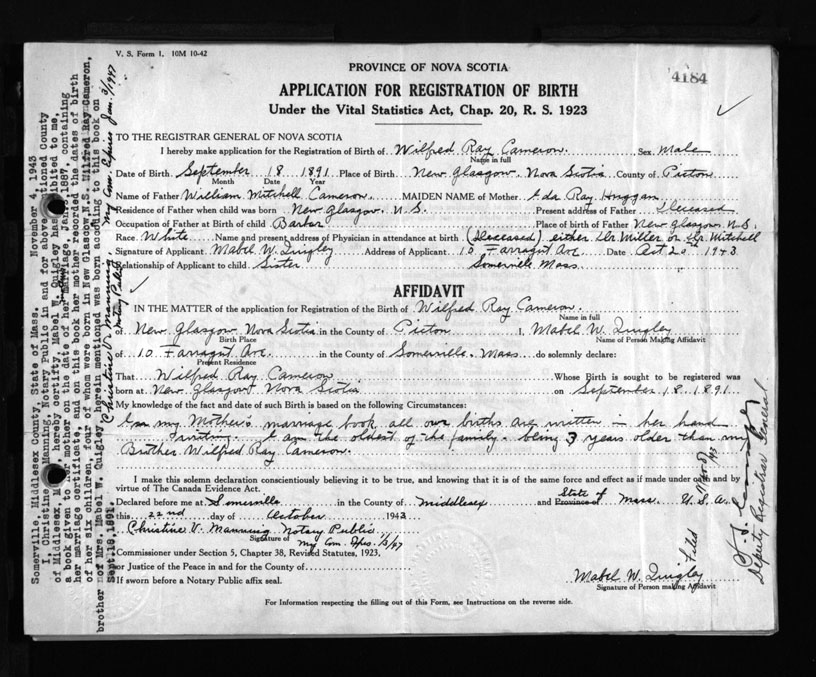 V. S. Form 1. 10M 10-42
PROVINCE OF NOVA SCOTIA
4184
APPLICATION FOR REGISTRATION OF BIRTH
Under the Vital Statistics Act, Chap. 20, R. S. 1923
TO THE REGISTRAR GENERAL OF NOVA SCOTIA
I hereby make application for the Registration of Birth of Wilfred Ray Cameron. Sex Male
Name in full
Date of Birth September 18 1891 Place of Birth New Glasgow. Nova Scotia County of Pictou
Month Date Year
Name of Father William Mitchell Cameron. MAIDEN NAME of Mother Eda Ray Huggan.
Residence of Father when child was born New Glasgow. N.S. Present address of Father Deceased
Occupation of Father at Birth of child Barber Place of birth of Father New Glasgow N.S.
Race White Name and present address of Physician in attendance at birth (Deceased) either Dr Miller or Dr. Mitchell
Signature of Applicant Mabel W. Quigley Address of Applicant 10 Farragut Ave Date Oct 20th 1943
Relationship of Applicant to child Sister Somerville Mass.
AFFIDAVIT
IN THE MATTER of the application for Registration of the Birth of Wilfred Ray Cameron.
Name in full
of New Glasgow Nova Scotia in the County of Pictou I, Mabel W. Quigley
Birth Place Name of Person making Affidavit
of 10 Farragut Ave. in the County of Somerville. Mass. do solemnly declare:
Present Residence
That Wilfred Ray Cameron Whose Birth is sought to be registered was
born at New Glasgow Nova Scotia on September 18. 1891.
My knowledge of the fact and date of such Birth is based on the following Circumstances:
my Mother's marriage book all our births are written in her hand
I am the oldest of the family. being 3 years older than my
Brother Wilfred Ray Cameron.
I make this solemn declaration conscientiously believing it to be true, and knowing that it is of the same force and effect as if made under oath and by
virtue of The Canada Evidence Act.
Declared before me at Somerville in the County of Middlesex and State of Province of Mass. U.S.A.
this 22nd day of October 1943
Christine V. Manning Notary Public
Signature of
my Com. Expires 1/3/47
Commissioner under Section 5, Chapter 38, Revised Statutes, 1923.
or Justice of the Peace in and for the County of
If sworn before a Notary Public affix seal.
Mabel W. Quigley
Signature of Person making Affidavit
For Information respecting the filling out of this Form, see Instructions on the reverse side.
Somerville, Middlesex County, State of Mass. November 4, 1943
I, Christine V. Manning, Notary Public in and for above mentioned County
of Middlesex, do hereby certify, Mabel W. Quigley has exhibited to me,
a book given to her mother on the date of her marriage, Jan. 1887, containing
her marriage certificate, and on this book her mother recorded the dates of birth
of her six children, four of whom were born in New Glasgow, N.S. Wilfred Ray Cameron,
brother of Mrs. Mabel W. Quigley, herein mentioned was born according to this book on
Sept. 18, 1891.
Christine V. Manning
Notary Public
my Com. Expires Jan. 3/1947
Filed
Deputy Registrar General